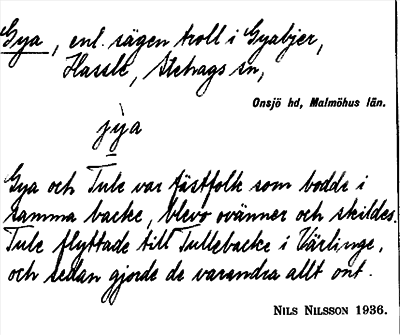 Gya, enl. sägen troll i Gyabjer,
Hassle, Stehags sn,
Onsjö hd, Malmöhus län.
jỳa
Gya och Tule var fästfolk som bodde i
samma backe, blevo ovänner och skildes.
Tule flyttade till Tullebacke i Värlinge,
och sedan gjorde de varandra allt ont.
NILS NILSSON 1936.